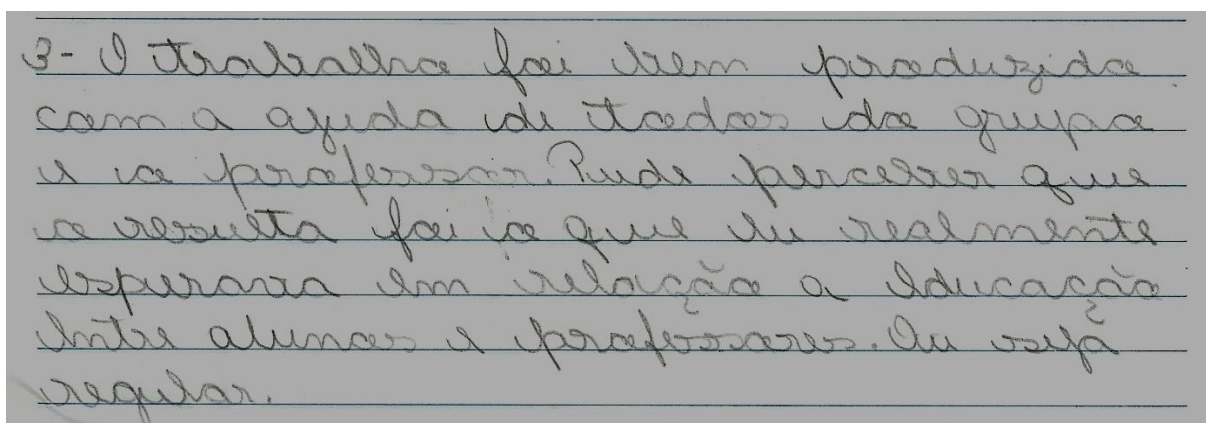 3- O trabalho foi bem produzido
com a ajuda de todos do grupo
e o professor. Pude perceber que
o resulta foi o que eu realmente
esperava em relação a educação
entre alunos e professores. Ou seja
regular.